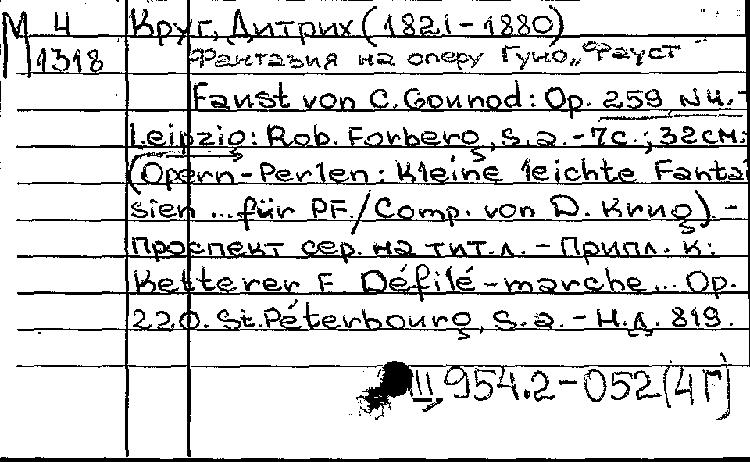 М 4 Круг, Дитрих (1821-1880)
1318 Фантазия на оперу Гуно „Фауст"
Faust von C. Gounod: Op. 259 N4. -
Leipzig: Rob. Forberg, s.a. - 7с.; 32см.
(Opern-Perlen: Kleine leichte Fanta-
sien ... für PF./Comp. von D. Krug). -
Проспект сер. на тит. л. - Припл. к:
Ketterer E. Défilé-marche... Op.
220. St. Péterbourg, s.a. - Н.д. 819.
III, 954.2-052(4Г)